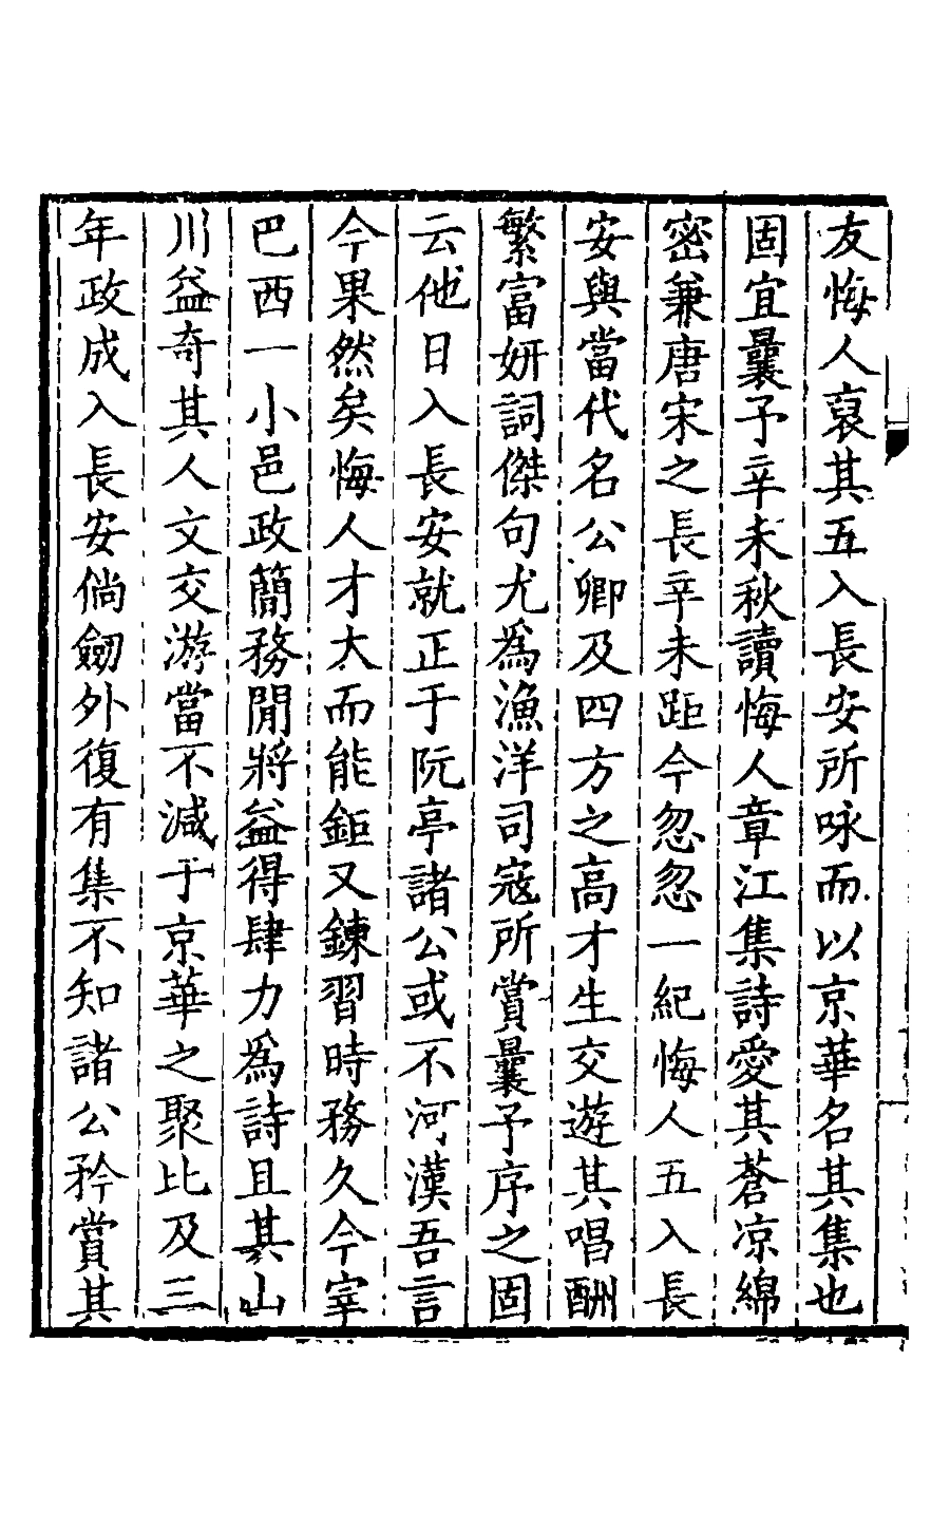 友悔人裒其五入長安所咏而以京華名其集也
固宜曩予辛未秋讀悔人章江集詩愛其蒼凉綿
密兼唐宋之長辛未距今忽忽一紀悔人五入長
安與當代名公卿及四方之高才生交遊其唱酬
繁富妍詞傑句尤爲漁洋司寇所賞曩予序之固
云他日入長安就正于阮亭諸公或不河漢吾言
今果然矣悔人才大而能鉅又鍊習時務久今宰
巴西一小邑政簡務閒將益得肆力爲詩且其山
川益奇其人文交游當不減于京華之聚比及三
年政成入長安倘劒外復有集不知諸公矜賞其